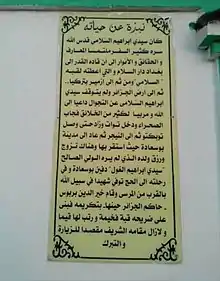 نبذة عن حياته
كان سيدي ابراهيم السلامي قدس الله
سره كثير السفر ملتمسا المعارف
و الحقائق و الأنوار الى أن قاده القدر إلى
بغداد دار السلام و التي أعطته لقبه
السلامي ومن ثم الى أزمير بتركيا..
ثم الى أرض الجزائر ولم يتوقف سيدي
ابراهيم السلامي عن التجوال داعيا إلى
الله و مربيا لكثير من الخلائق فجاب
الصحراء ودخل توات وزاد حتى وصل
تومبكتو ثم الى النيجر ثم عاد إلى مدينة
بوسعادة حيث استقر بها وهناك تزوج
ورزق ولده الذي لم يره الولي الصالح
"سيدي ابراهيم الغول" دفين بوسعادة و في
رحلته الى الحج توفي شهيدا في سبيل الله
بالقرب من المرسى وقام خير الدين بربروس
حاكم الجزائر حينها.. بتكريمه فبنى
على ضريحه قبة فخيمة و رتب لها قيما
و لازال مقامه الشريف مقصدا للزيارة
و التبرك